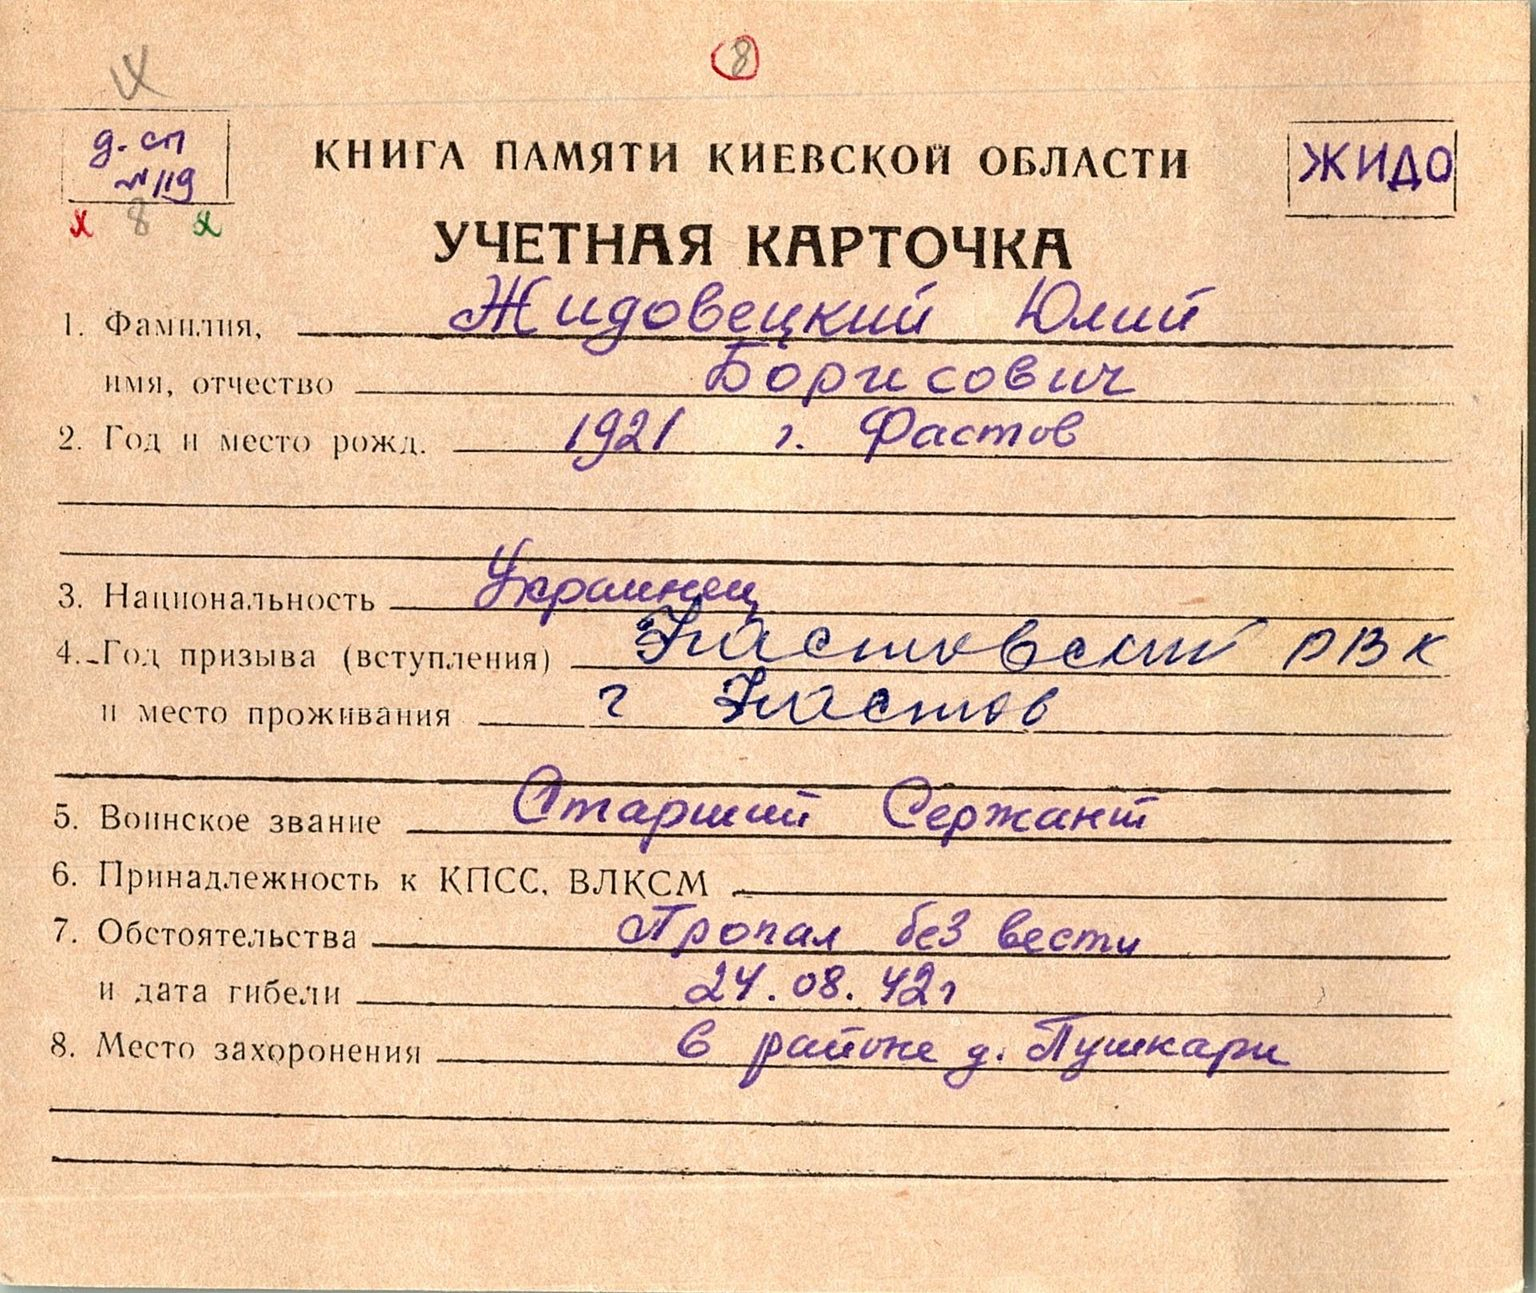 8
д. сп
№ 119
8
КНИГА ПАМЯТИ КИЕВСКОЙ ОБЛАСТИ
ЖИДО
УЧЕТНАЯ КАРТОЧКА
1. Фамилия, Жидовецкий Юлий
имя, отчество Борисович
2. Год и место рожд. 1921 г. Фастов
3. Национальность Украинец
4. Год призыва (вступления) Фастовский РВК
и место проживания г Фастов
5. Воинское звание Старший Сержант
6. Принадлежность к КПСС, ВЛКСМ
7. Обстоятельства Пропал без вести
и дата гибели 24.08.42г
8. Место захоронения в районе д. Пушкари